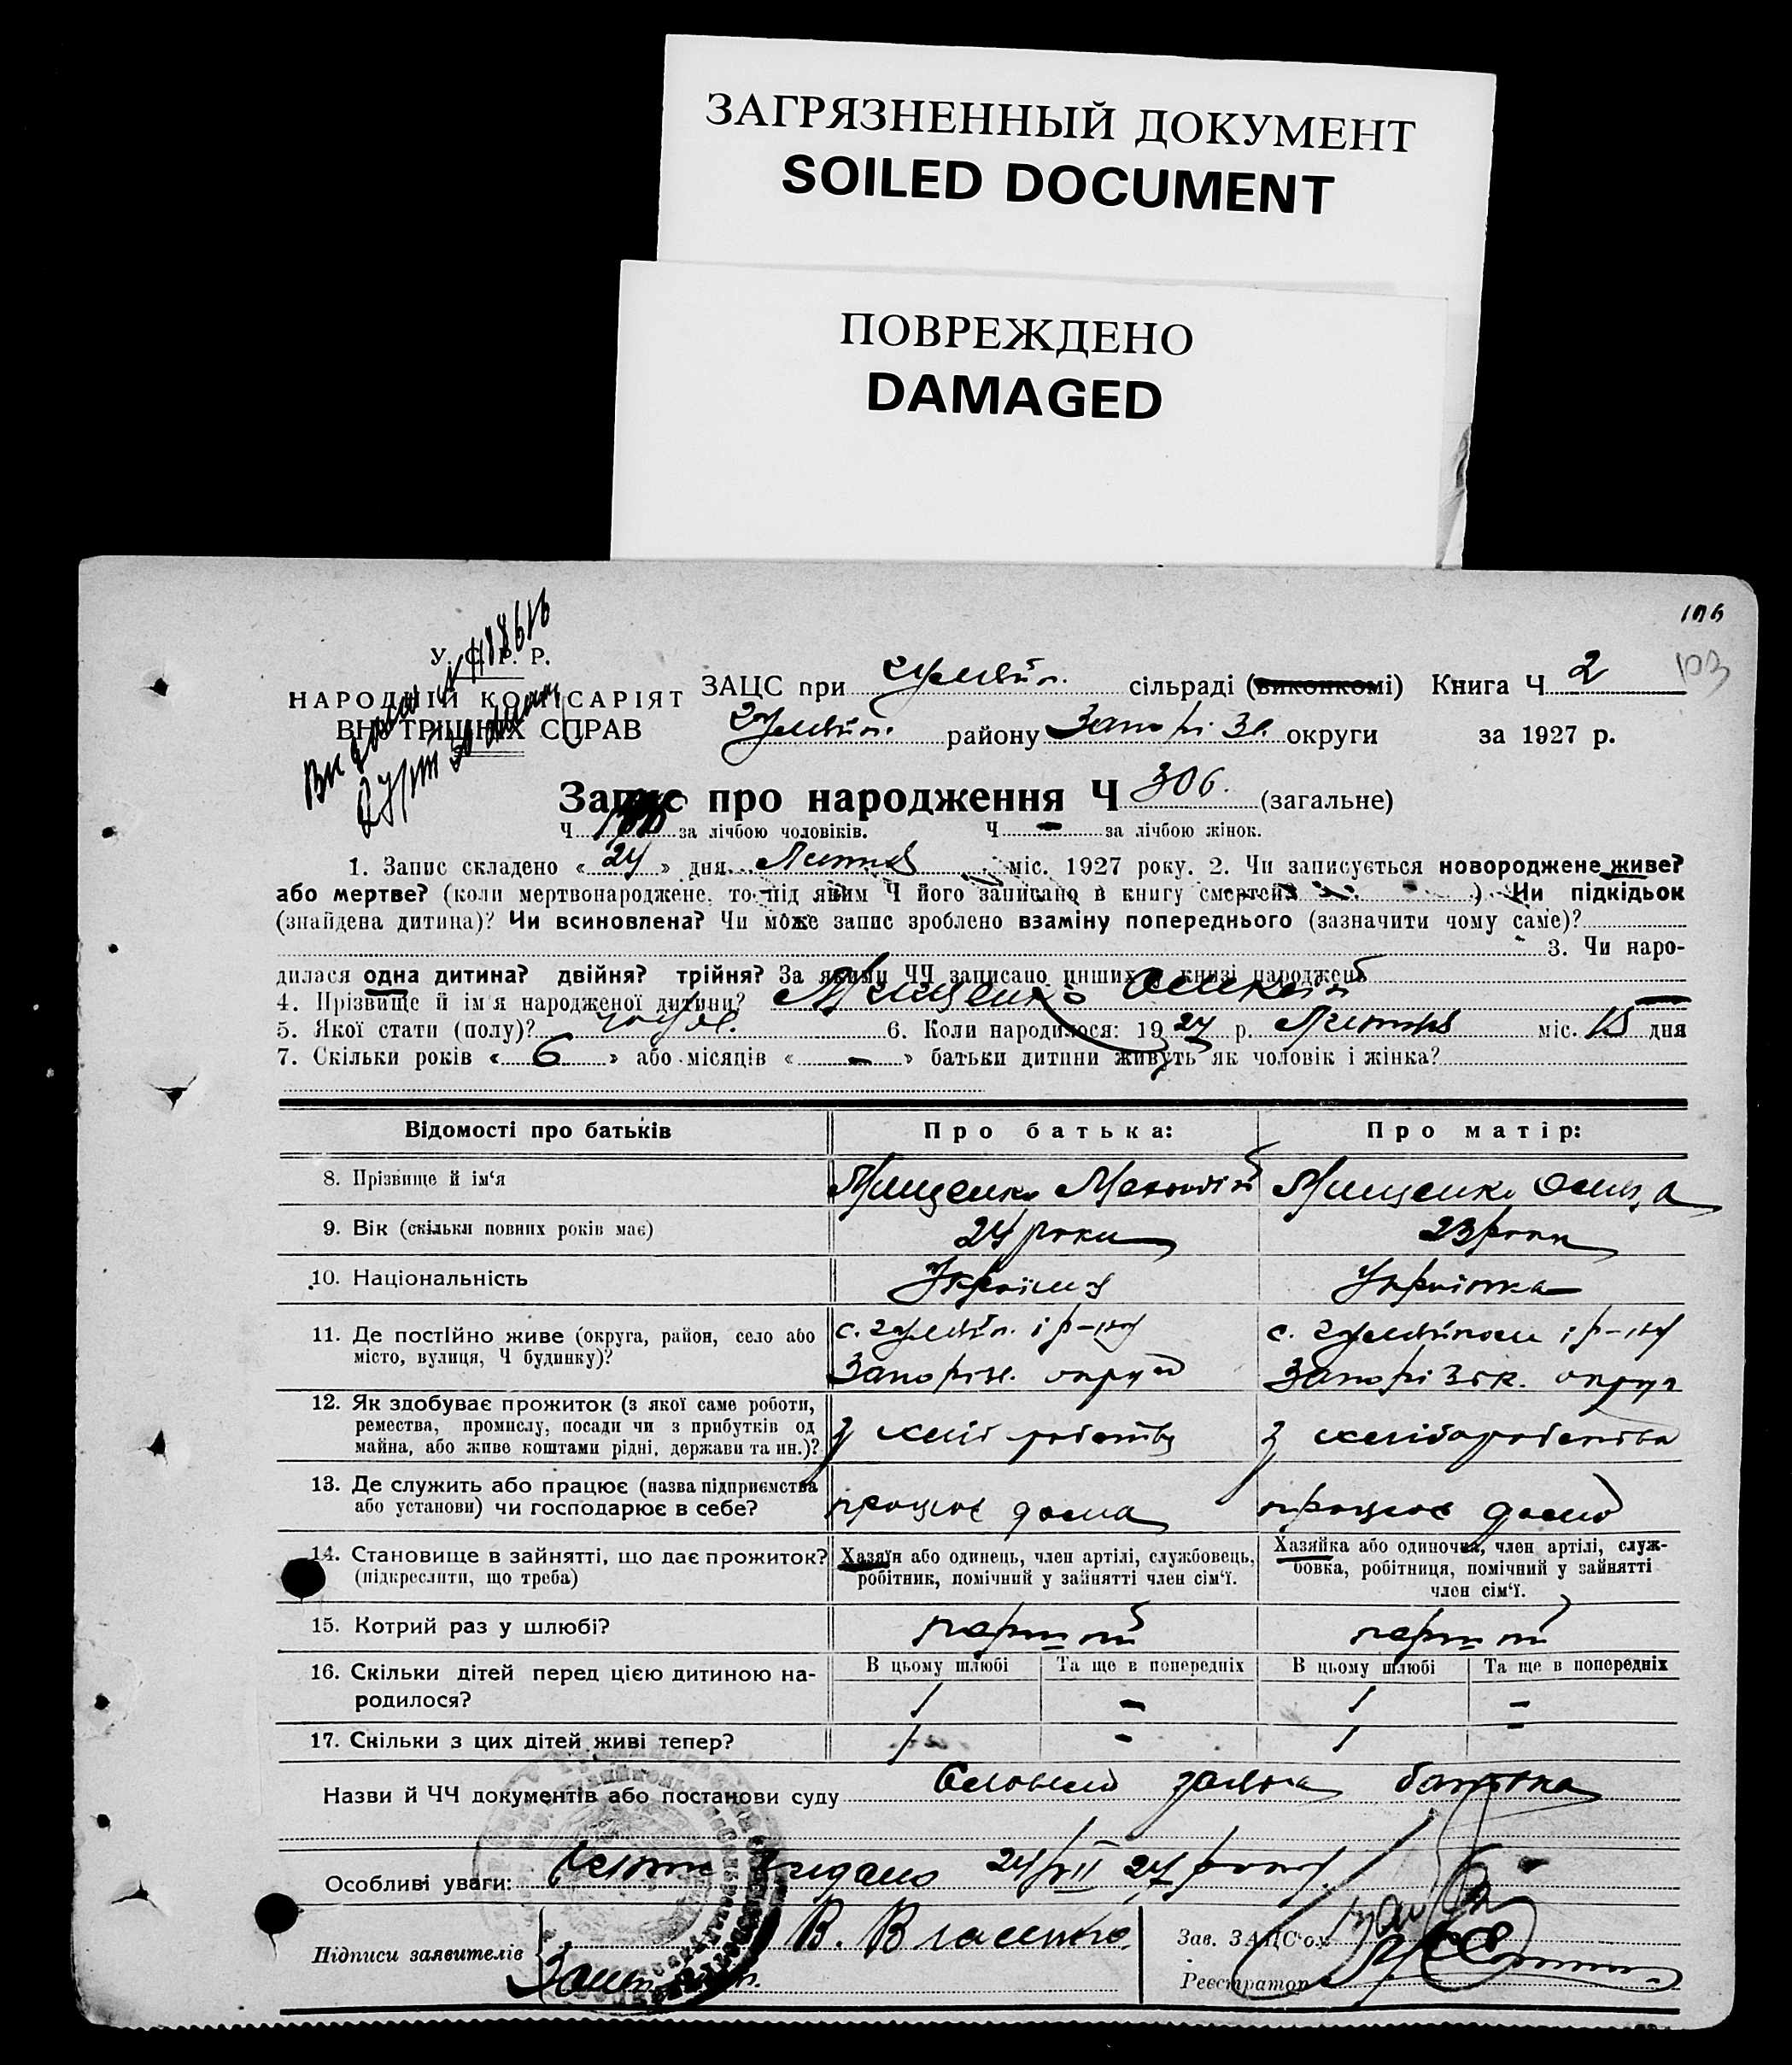 ЗАГРЯЗНЕННЫЙ ДОКУМЕНТ
SOILED DOCUMENT
ПОВРЕЖДЕНО
DAMAGED
103
У. С. Р. Р.
НАРОДНІЙ КОМІСАРІЯТ
ВНУТРІШНІХ СПРАВ
ЗАЦС при сільраді (виконкомі) Книга Ч 2
району Запоріз. округи за 1927 р.
Запис про народження Ч 306. (загальне)
Ч за лічбою чоловіків. Ч – за лічбою жінок.
1. Запис складено « 24 » дня Липня міс. 1927 року. 2. Чи записується новороджене живе?
або мертве? (коли мертвонароджене, то під яким Ч його записано в книгу смертей ) Чи підкідьок
(знайдена дитина)? Чи всиновлена? Чи може запис зроблено взаміну попереднього (зазначити чому саме)?
3. Чи наро-
дилася одна дитина? двійня? трійня? За якими ЧЧ записано инших в книзі народжень
4. Прізвище й ім'я народженої дитини? Мищенко Олексій
5. Якої стати (полу)? чолов. 6. Коли народилося: 19 27 р. Липня міс. 15 дня
7. Скільки років « 6 » або місяців « – » батьки дитини живуть як чоловік і жінка?
Відомості про батьків Про батька: Про матір:
8. Прізвище й ім'я Мищенко Мищенко
9. Вік (скільки повних років має) 24 роки 23 роки
10. Національність Українец Українка
11. Де постійно живе (округа, район, село або місто, вулиця, Ч будинку)? с. і р-ну с. і р-ну
Запоріж. округи Запорізьк. округи
12. Як здобуває прожиток (з якої саме роботи,
ремества, промислу, посади чи з прибутків од
майна, або живе коштами рідні, держави та ин.)? з хліборобства з хліборобства
13. Де служить або працює (назва підприємства
або установи) чи господарює в себе? працює дома працює дома
14. Становище в зайнятті, що дає прожиток?
(підкреслити, що треба)
Хазяїн або одинець, член артілі, службовець,
робітник, помічний у зайнятті член сім'ї.
Хазяйка або одиночка, член артілі, служ-
бовка, робітниця, помічний у зайнятті
член сім'ї.
15. Котрий раз у шлюбі? перший перший
16. Скільки дітей перед цією дитиною на-
родилося?
В цьому шлюбі Та ще в попередніх В цьому шлюбі Та ще в попередніх
1 – 1 –
17. Скільки з цих дітей живі тепер? 1 - 1 -
Назви й ЧЧ документів або постанови суду Словесна заява батька
Особливі уваги: видано 24/VII 27 року.
Підписи заявителів В. Власенко
Зав. ЗАЦС'ом
Реєстратор